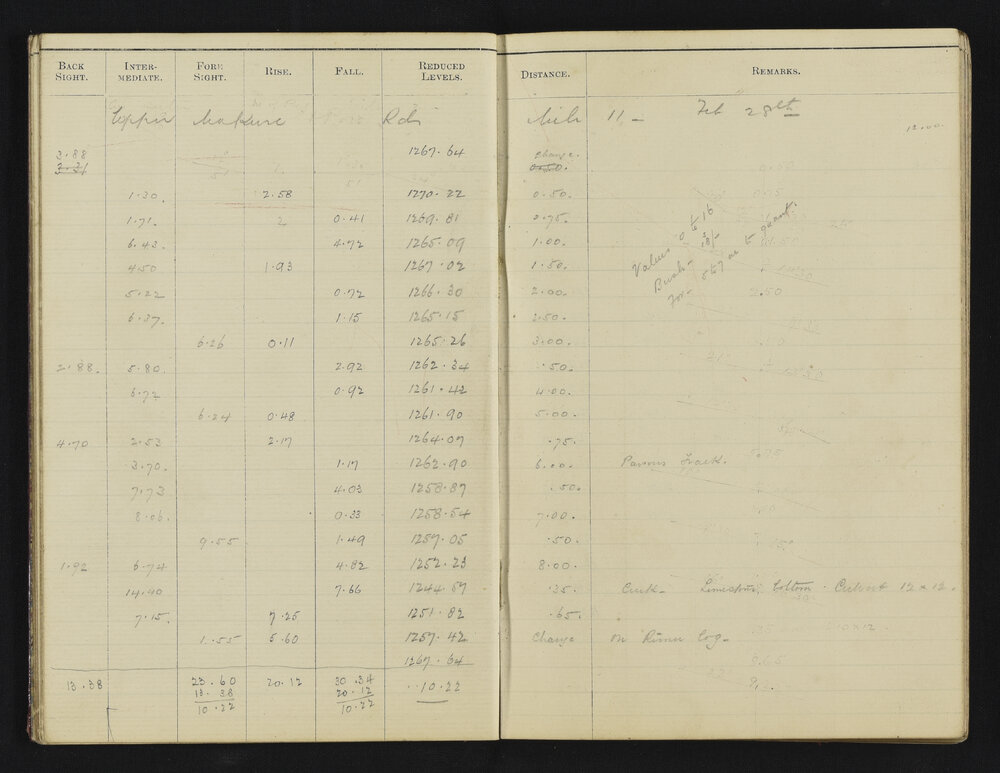 BACK SIGHT. INTER-MEDIATE. FORE SIGHT. RISE. FALL. REDUCED LEVELS. DISTANCE. REMARKS.
Upper Makuri Rd. Mile 11 - Feb 28th
12.00
3.88 1267.64 Change.
3.31 0.50.
1.30. 2.58 1270.22 0.50.
1.71. 0.41 1269.81 0.75.
6.43. 4.72 1265.09 1.00.
4.50 1.93 1267.02 1.50.
5.22 0.72 1266.30 2.00.
6.37. 1.15 1265.15 2.50.
6.26 0.11 1265.26 3.00.
2.88. 5.80. 2.92 1262.34 .50.
6.72 0.92 1261.42 4.00.
6.24 0.48 1261.90 5.00.
4.70 2.53 2.17 1264.07 .75.
3.70. 1.17 1262.90 6.00. Parsons Track.
7.73 4.03 1258.87 .50.
8.06. 0.33 1258.54 7.00.
9.55 1.49 1257.05 .50.
1.92 6.74 4.82 1252.23 8.00.
14.40 7.66 1244.57 .35. Creek - Limestone bottom. Culvert 12 x 12.
7.15. 7.25 1251.82 .65.
1.55 5.60 1257.42 Change on Rimu log -
1267.64
13.38 23.60 20.12 30.34 10.22
13.38 20.12
10.22 10.22
Values 0 to 16
Bush -